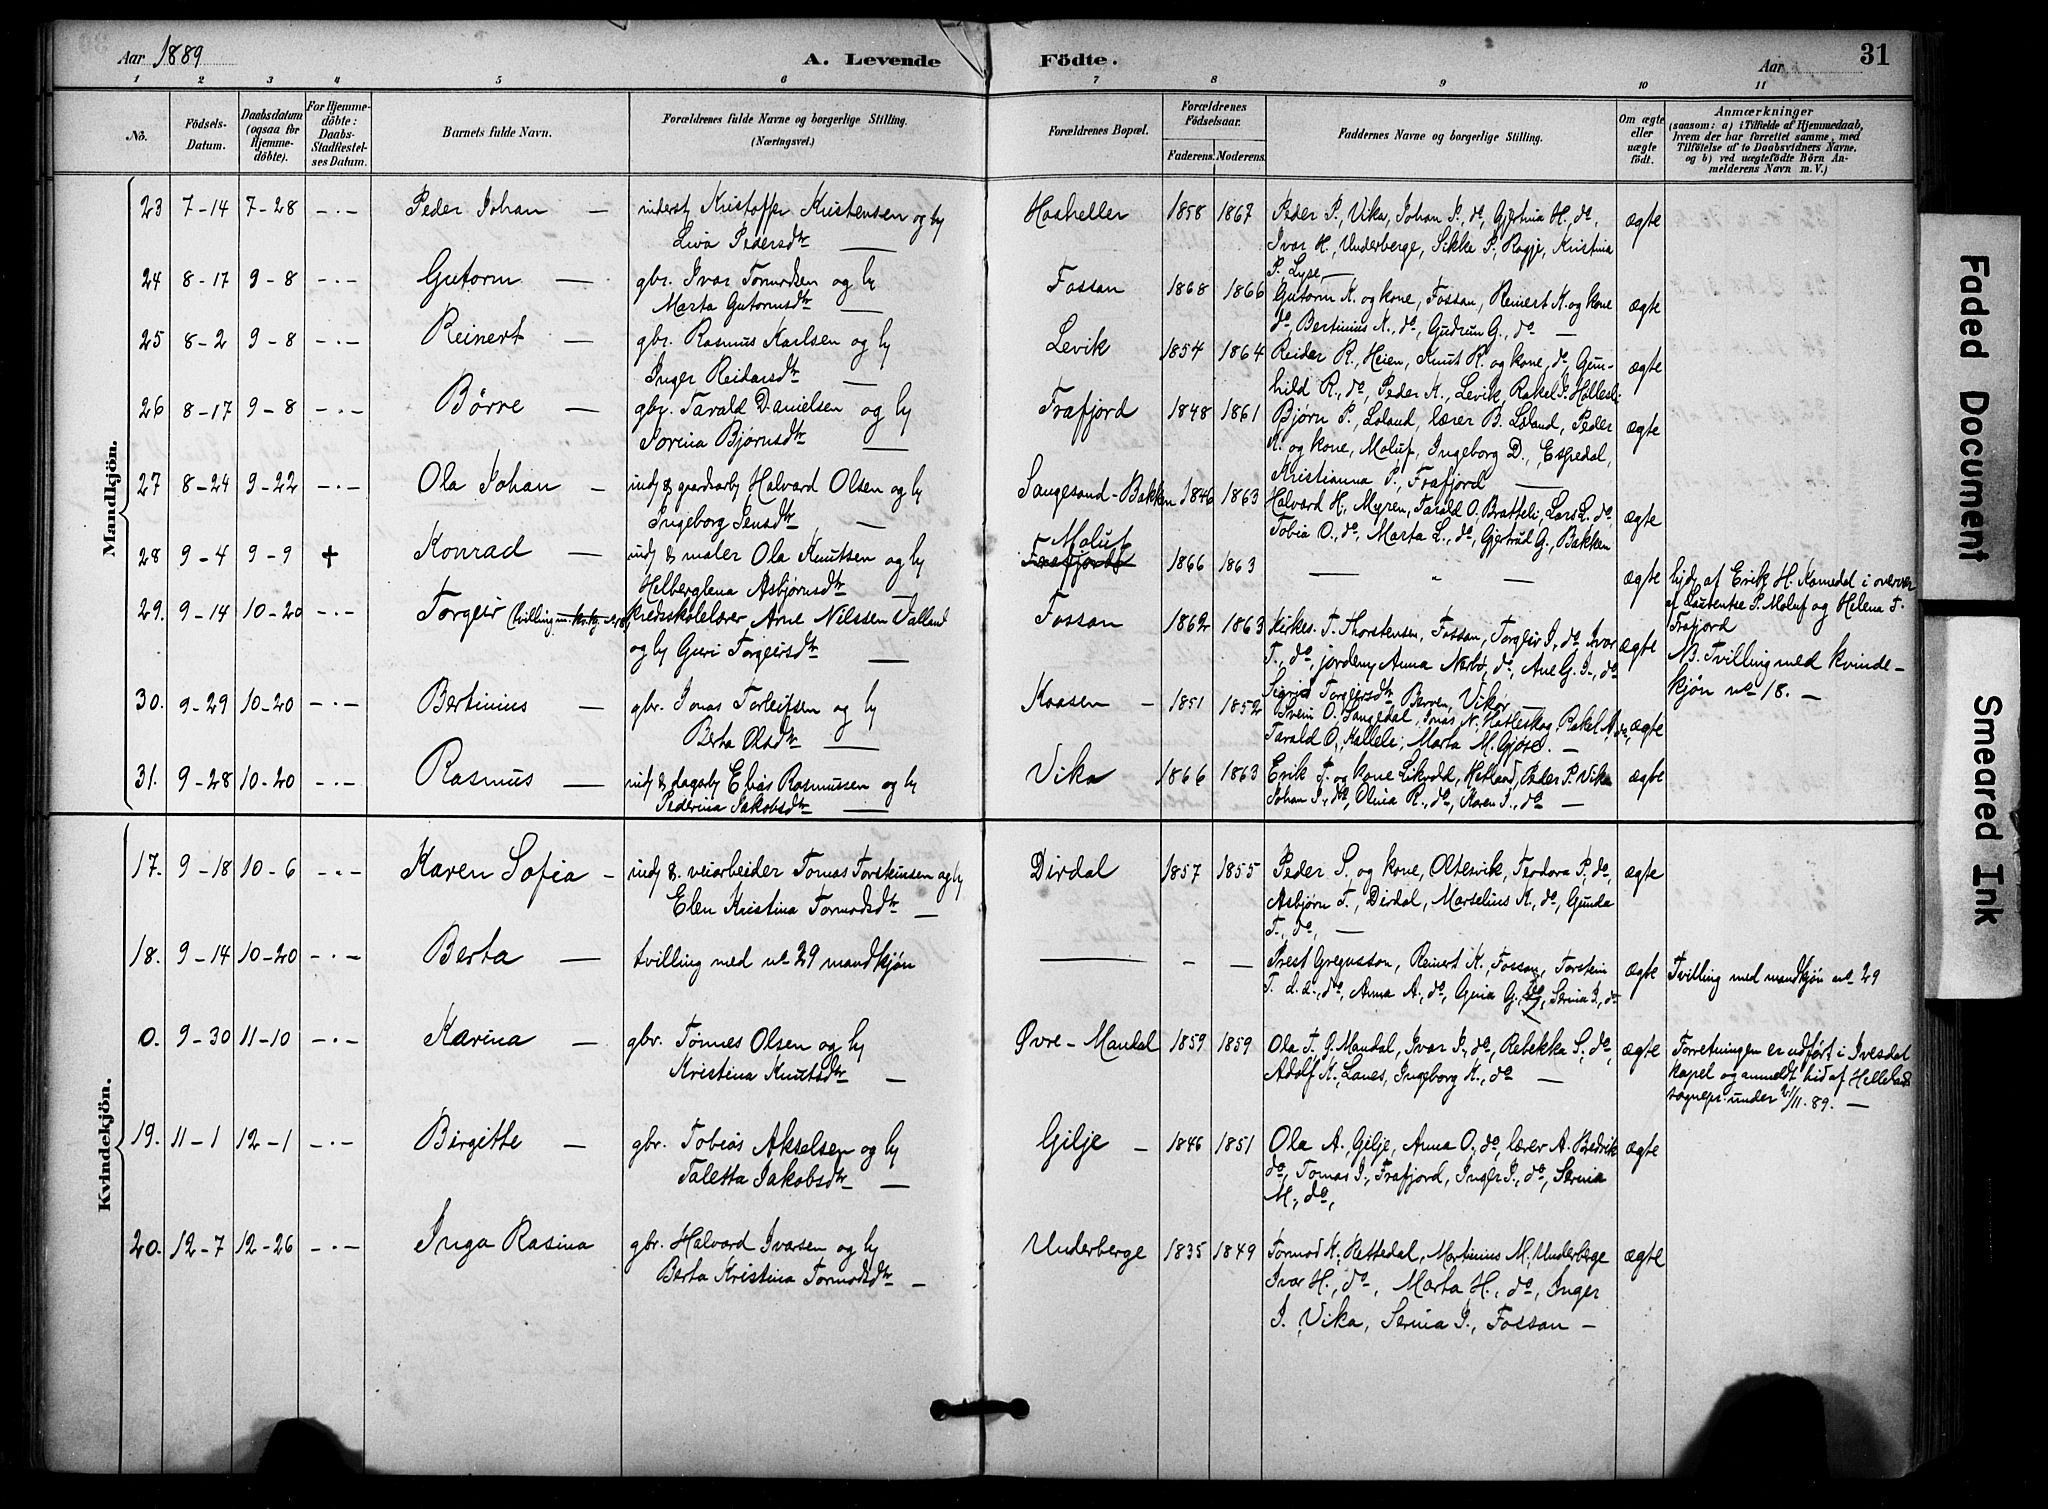 Aar 1889
A. Levende Födte.
Aar
31
1 2 3 4 5 6 7 8 9 10 11
Nö.
Födsels-Datum.
Daabsdatum (ogsaa for Hjemmedöbte).
For Hjemmedöbte: Daabs-Stadfæstelses Datum.
Barnets fulde Navn.
Forældrenes fulde Navne og borgerlige Stilling. (Næringsvei.)
Forældrenes Bopæl.
Forældrenes Födselsaar.
Faderens. Moderens.
Faddernes Navne og borgerlige Stilling.
Om ægte eller uægte födt.
Anmærkninger (saasom: a) i Tilfælde af Hjemmedaab, hvem der har forrettet samme, med Tilföielse af to Daabsvidners Navne, og b) ved uægtefödte Börn Anmelderens Navn m. V.)
Mandkjön.
23 7-14 7-28 -.- Peder Johan — inderst Kristoffer Kristensen og h Hoaheller 1858 1867 Peder P., Vika, Johan P., do, Gjertina H., do. ægte
Liva Pedersdtr — Ivar H., Underberge, Sikke P., Ragje, Kristina
P. Lyse —
24 8-17 9-8 -.- Gutorm — gbr. Ivar Tormodsen og h Fossan 1868 1866 Gutorm K. og kone, Fossan, Reinert K. og kone ægte
Marta Gutormsdtr — do, Bertinius K., do, Gudrun G., do —
25 8-2 9-8 -.- Reinert — gbr. Rasmus Karlsen og h Levik 1854 1864 Reidar R., Heien, Knut R. og kone, do, Gun- ægte
Inger Reidarsdtr — hild R., do, Peder K., Levik, Rakel J. Hollesli
26 8-17 9-8 -.- Börre — gbr. Tarald Danielsen og h Frafjord 1848 1861 Bjørn P., Loland, lærer B. Loland, Peder ægte
Sorina Bjørnsdtr — K. og kone, Moluf, Ingeborg D., Espedal,
Kristianna P., Frafjord —
27 8-24 9-22 -.- Ola Johan — indj & gaardsarb. Halvard Olsen og h Sangesand-Bakken 1846 1863 Halvard H., Myren, Tarald O., Bratteli, Lars L. do ægte
Ingeborg Jensdtr — Tobia O., do, Marta L., do, Gjertrud G., Bakken
28 9-4 9-9 + Konrad — indj & maler Ola Knutsen og h Moluf Frafjord 1866 1863 — " — ægte hjdr. af Erik H. Kommedal i overvær
Helberglena Asbjørnsdtr — af Laurentse P. Moluf og Helena T. Frafjord
29. 9-14 10-20 -.- Torgeir (tvilling kredsskolelærer Arne Nilssen Valland Fossan 1862 1863 Kirkes. T. Thorstensen, Fossan, Torgeir I., do, Ivar ægte N. Tvilling med kvinde-
og h Guri Torgeirsdtr — T., do, jordemy Anna Nærbø, do, Ane G. I., do kjön no 18. —
Sigrid Torgeirsdtr Berven, Vikør —
30. 9-29 10-20 -.- Bertinius — gbr. Jonas Torleifsen og h Kaasen — 1851 1852 Svein O., Sangedal, Jonas N. Hatleskog, Rakel A., do, ægte
Berta Olsdtr — Tarald O., Kalleli, Marta M. Gjøse —
31. 9-28 10-20 -.- Rasmus — indj & dagarb Elias Rasmussen og h Vika 1866 1863 Erik T. og kone Likvold, Hetland, Peder P. Vika ægte
Pederina Jakobsdtr — Johan I., do, Olina R., do, Karen I., do —
Kvindekjön.
17. 9-18 10-6 -.- Karen Sofia — indj & veiarbeider Tomas Torsteinsen og h Dirdal 1857 1855 Peder S. og kone, Oltesvik, Teodora P., do, ægte
Elen Kristina Tormodsdtr — Asbjørn T., Dirdal, Marselius K., do, Gunda
T., do, —
18. 9-14 10-20 -.- Berta — tvilling med no 29 mandkjön — - — Prest Gregusson, Reinert K., Fossan, Torstein ægte Tvilling med mandkjön no 29
T. d. e., do, Anna A., do, Gina G., do, Serina I., do
0. 9-30 11-10 -.- Karina — gbr. Tönnes Olsen og h Øvre-Mandal 1859 1859 Ola T. G. Mandal, Ivar I., do, Rebekka S., do, ægte Forretningen er udført i Ivesdal
Kristina Knutsdtr — Adolf K., Lanes, Ingeborg K., do — kapel og anmeldt hid af Hellelands
sognepr. under 21/11.89. —
19. 11-1 12-1 -.- Birgitte — gbr. Tobias Akselsen og h Gilje — 1846 1851 Ola A., Gilje, Anna O., do, lærer A. Bredvik ægte
Taletta Jakobsdtr — do, Tomas I., Frafjord, Inger I., do, Serina
M., do,
20. 12-7 12-26 -.- Inga Rasina gbr. Halvard Ivarsen og h Underberge 1835 1849 Tormod K., Hettedal, Martinius M., Underberge ægte
Berta Kristina Tormodsdtr — Ivar H., do, Marta H., do, Inger
I. Vika, Serina I., Fossan —
Faded Document
Smeared Ink